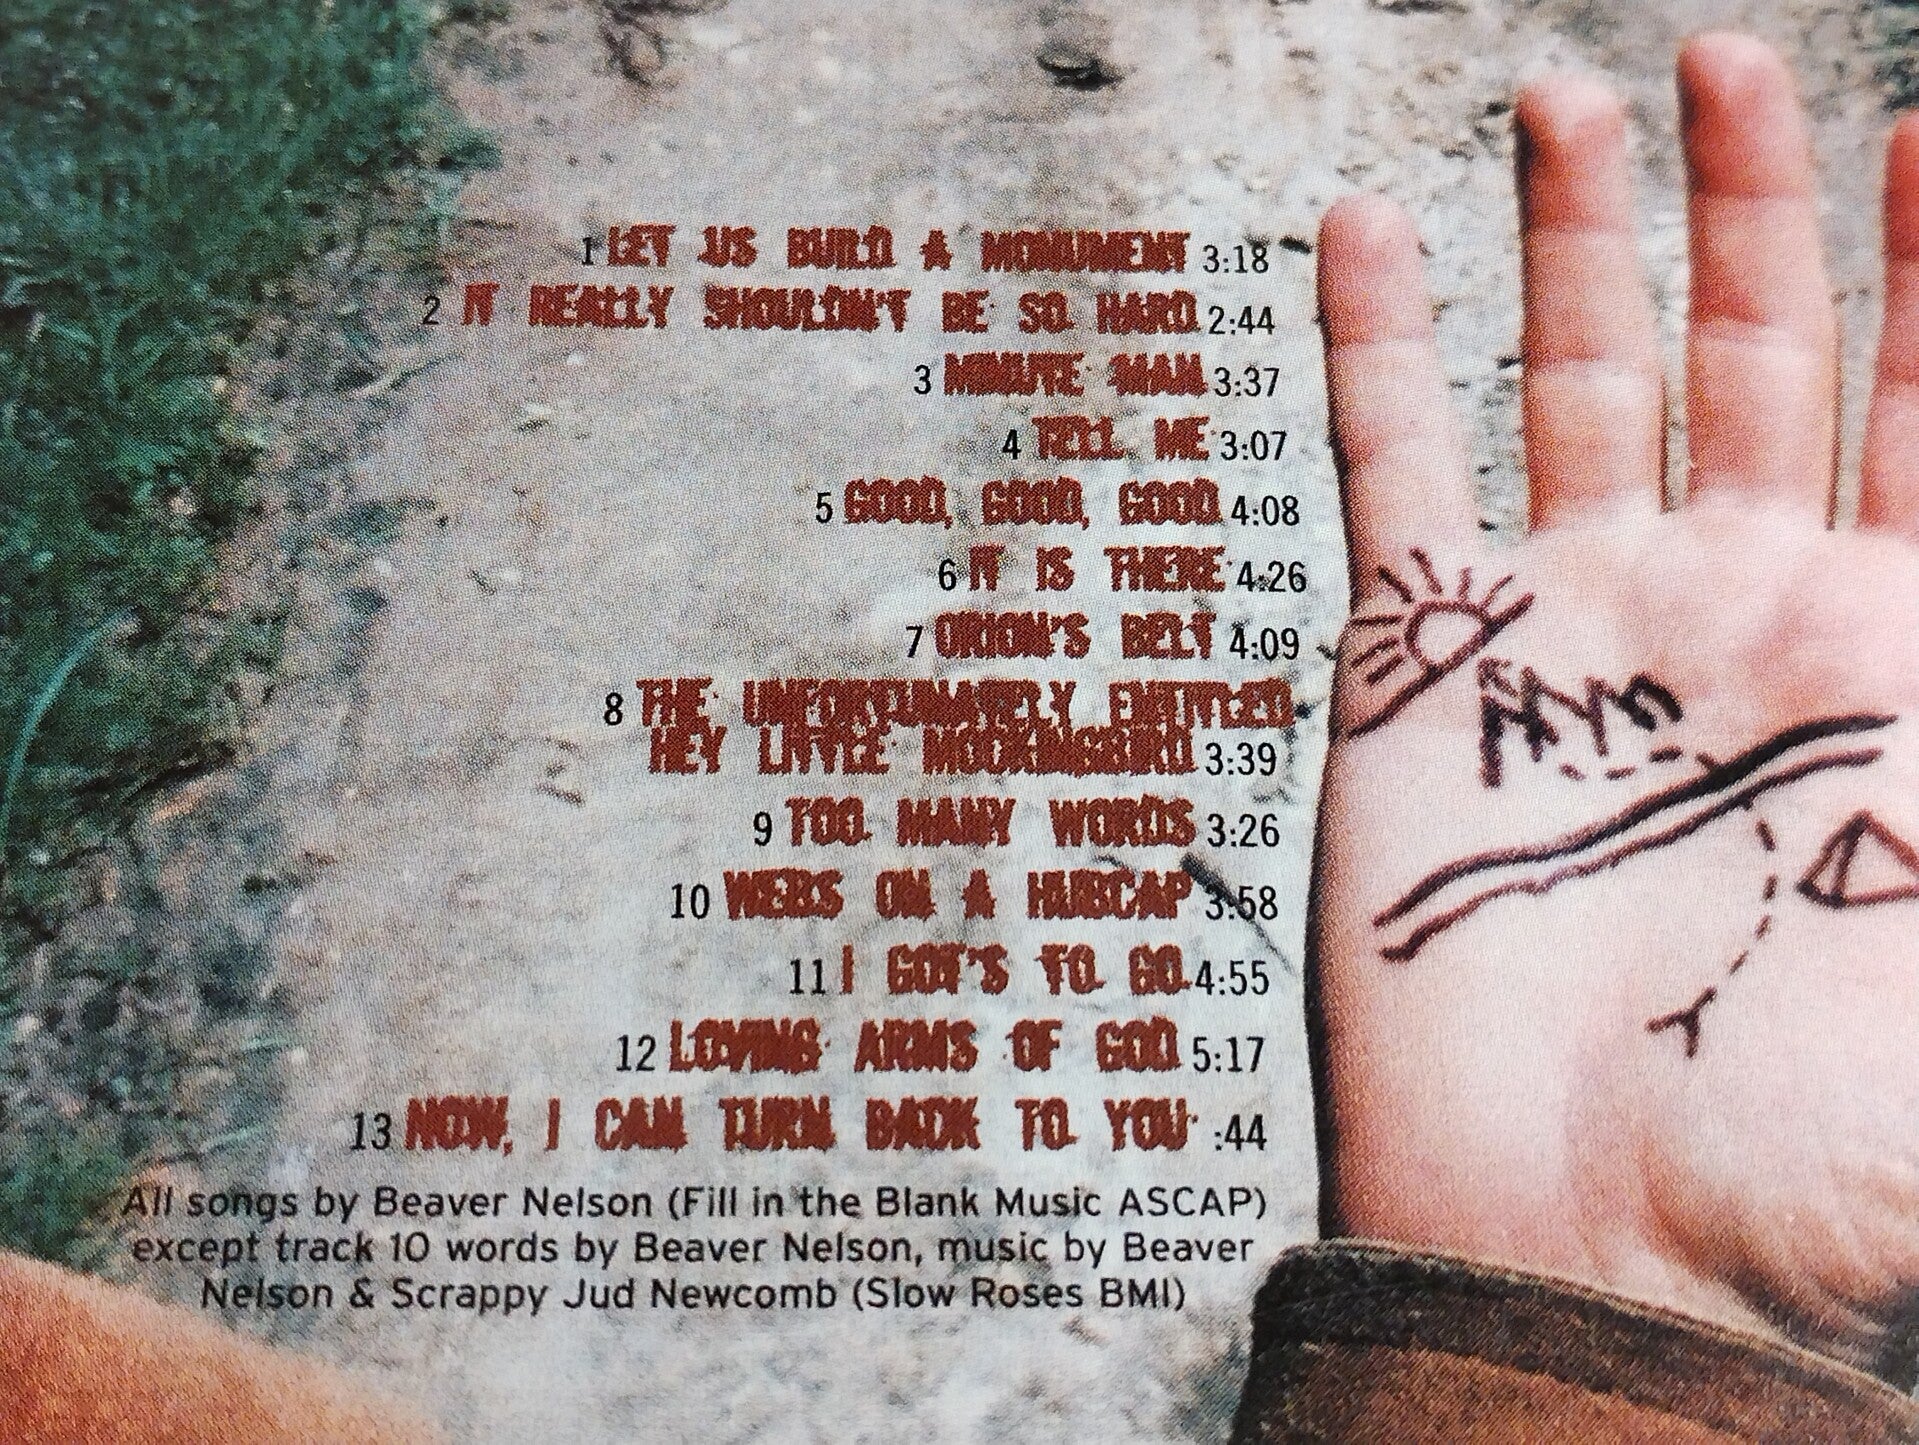 1 LET US BUILD A MONUMENT 3:18
2 IT REALLY SHOULDN'T BE SO HARD 2:44
3 MINUTE MAN 3:37
4 TELL ME 3:07
5 GOOD, GOOD, GOOD 4:08
6 IT IS THERE 4:26
7 ORION'S BELT 4:09
8 THE UNFORTUNATELY ENTITLED
HEY LITTLE MOCKINGBIRD 3:39
9 TOO MANY WORDS 3:26
10 WEBS ON A HUBCAP 3:58
11 I GOT'S TO GO 4:55
12 LOVING ARMS OF GOD 5:17
13 NOW, I CAN TURN BACK TO YOU :44
All songs by Beaver Nelson (Fill in the Blank Music ASCAP)
except track 10 words by Beaver Nelson, music by Beaver
Nelson & Scrappy Jud Newcomb (Slow Roses BMI)